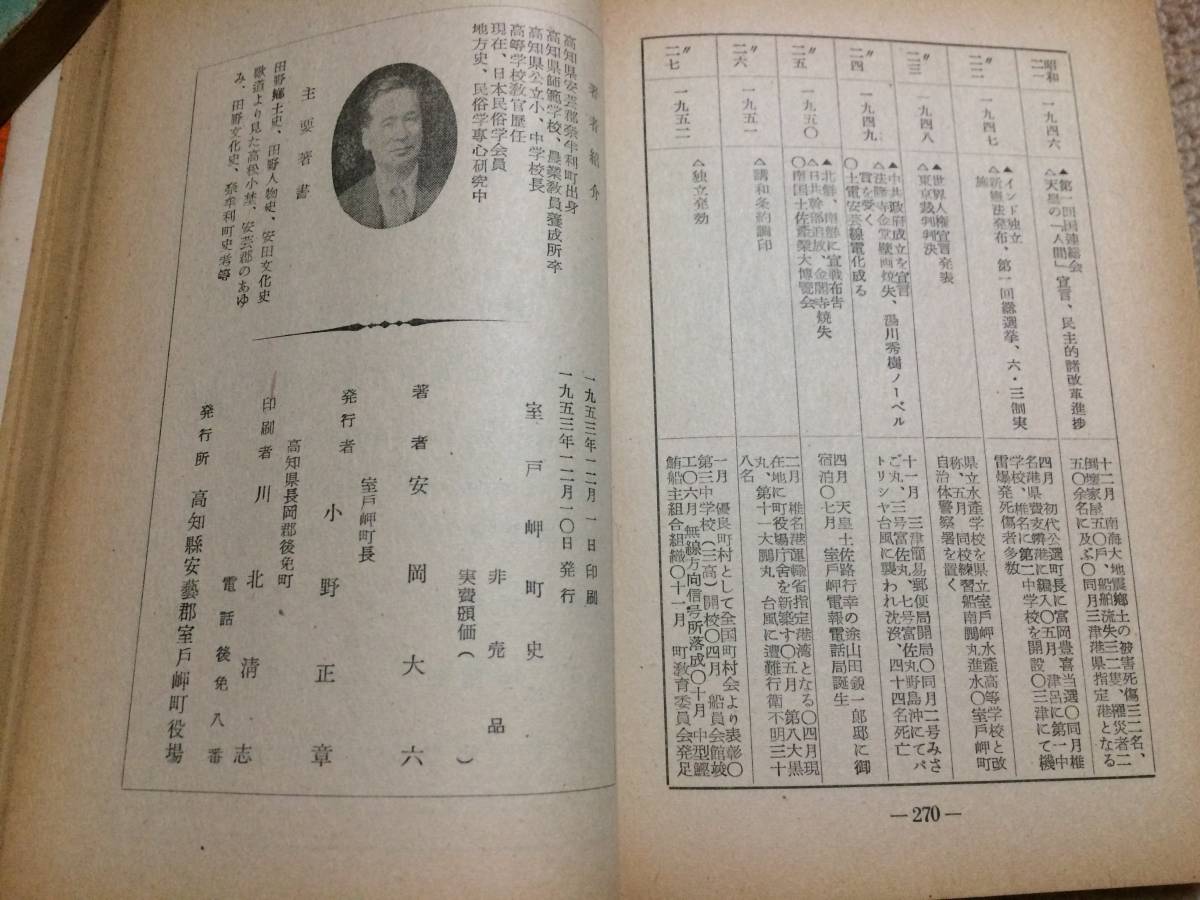 昭和二一
一九四六
▲第一回国連総会
△天皇の「人間」宣言、民主的諸改革進捗
十二月 南海大地震郷土の被害死傷三二名、
倒壊家屋五〇戸、船舶流失三二隻、罹災者二
五〇余名に及ぶ〇同月三津港県指定港となる
〃二二
一九四七
▲インド独立
△新憲法発布、第一回総選挙、六・三制実
施
四月 初代公選町長に富岡豊喜当選〇同月椎
名港県費支辨港に編入〇五月 津呂に第一中
学校、椎名に第二中学校を開設〇三津にて機
雷爆発死傷者多数
〃二三
一九四八
▲世界人権宣言発表
△東京裁判判決
県立水産学校を県立室戸岬水産高等学校と改
称、五月 同校練習船南鵬丸進水〇室戸岬町
自治体警察署を置く
〃二四
一九四九
▲中共政府成立を宣言
△法隆寺金堂壁画焼失、湯川秀樹ノーベル
賞を受く
〇土電安芸線電化成る
十一月 三津簡易郵便局開局〇同月二号みさ
ご丸、三号富佐丸、七号富佐丸野島沖にてパ
トリシヤ台風に襲われ沈没、四十四名死亡
〃二五
一九五〇
▲北鮮、南鮮に宣戦布告
△日共幹部追放、金閣寺焼失
〇南国土佐産業大博覧会
四月 天皇土佐路行幸の途山田鋭一郎邸に御
宿泊〇七月 室戸岬電報電話局誕生
二六
一九五一
△講和条約調印
二月 椎名港運輸省指定港湾となる〇四月現
在地に町役場庁舎を新築す〇五月 第八大黒
丸、第十一大鵬丸 台風に遭難行衛不明三十
八名
〃二七
一九五二
△独立発効
一月 優良町村として全国町村会より表彰〇
第三中学校(三高)開校〇四月 船員会館竣
工〇六月 無線方向信号所落成〇十月 中型鰹
鮪船主組合組織〇十一月 町教育委員会発足
—270—
著者紹介
高知県安芸郡奈半利町出身
高知県師範学校、農業教員養成所卒
高知県公立小、中学校長
高等学校教官歴任
現在、日本民俗学会員
地方史、民俗学専心研究中
主要著書
田野郷土史、田野人物史、安田文化史
歌道より見た高松小埜、安芸郡のあゆ
み、田野文化史、奈半利町史考等
一九五三年一二月 一日印刷
一九五三年一二月一〇日発行
室戸岬町史
非売品
実費頒価( )
著者 安岡大六
室戸岬町長
発行者 小野正章
高知県長岡郡後免町
印刷者 川北清志
電話後免八番
発行所 高知縣安藝郡室戸岬町役場